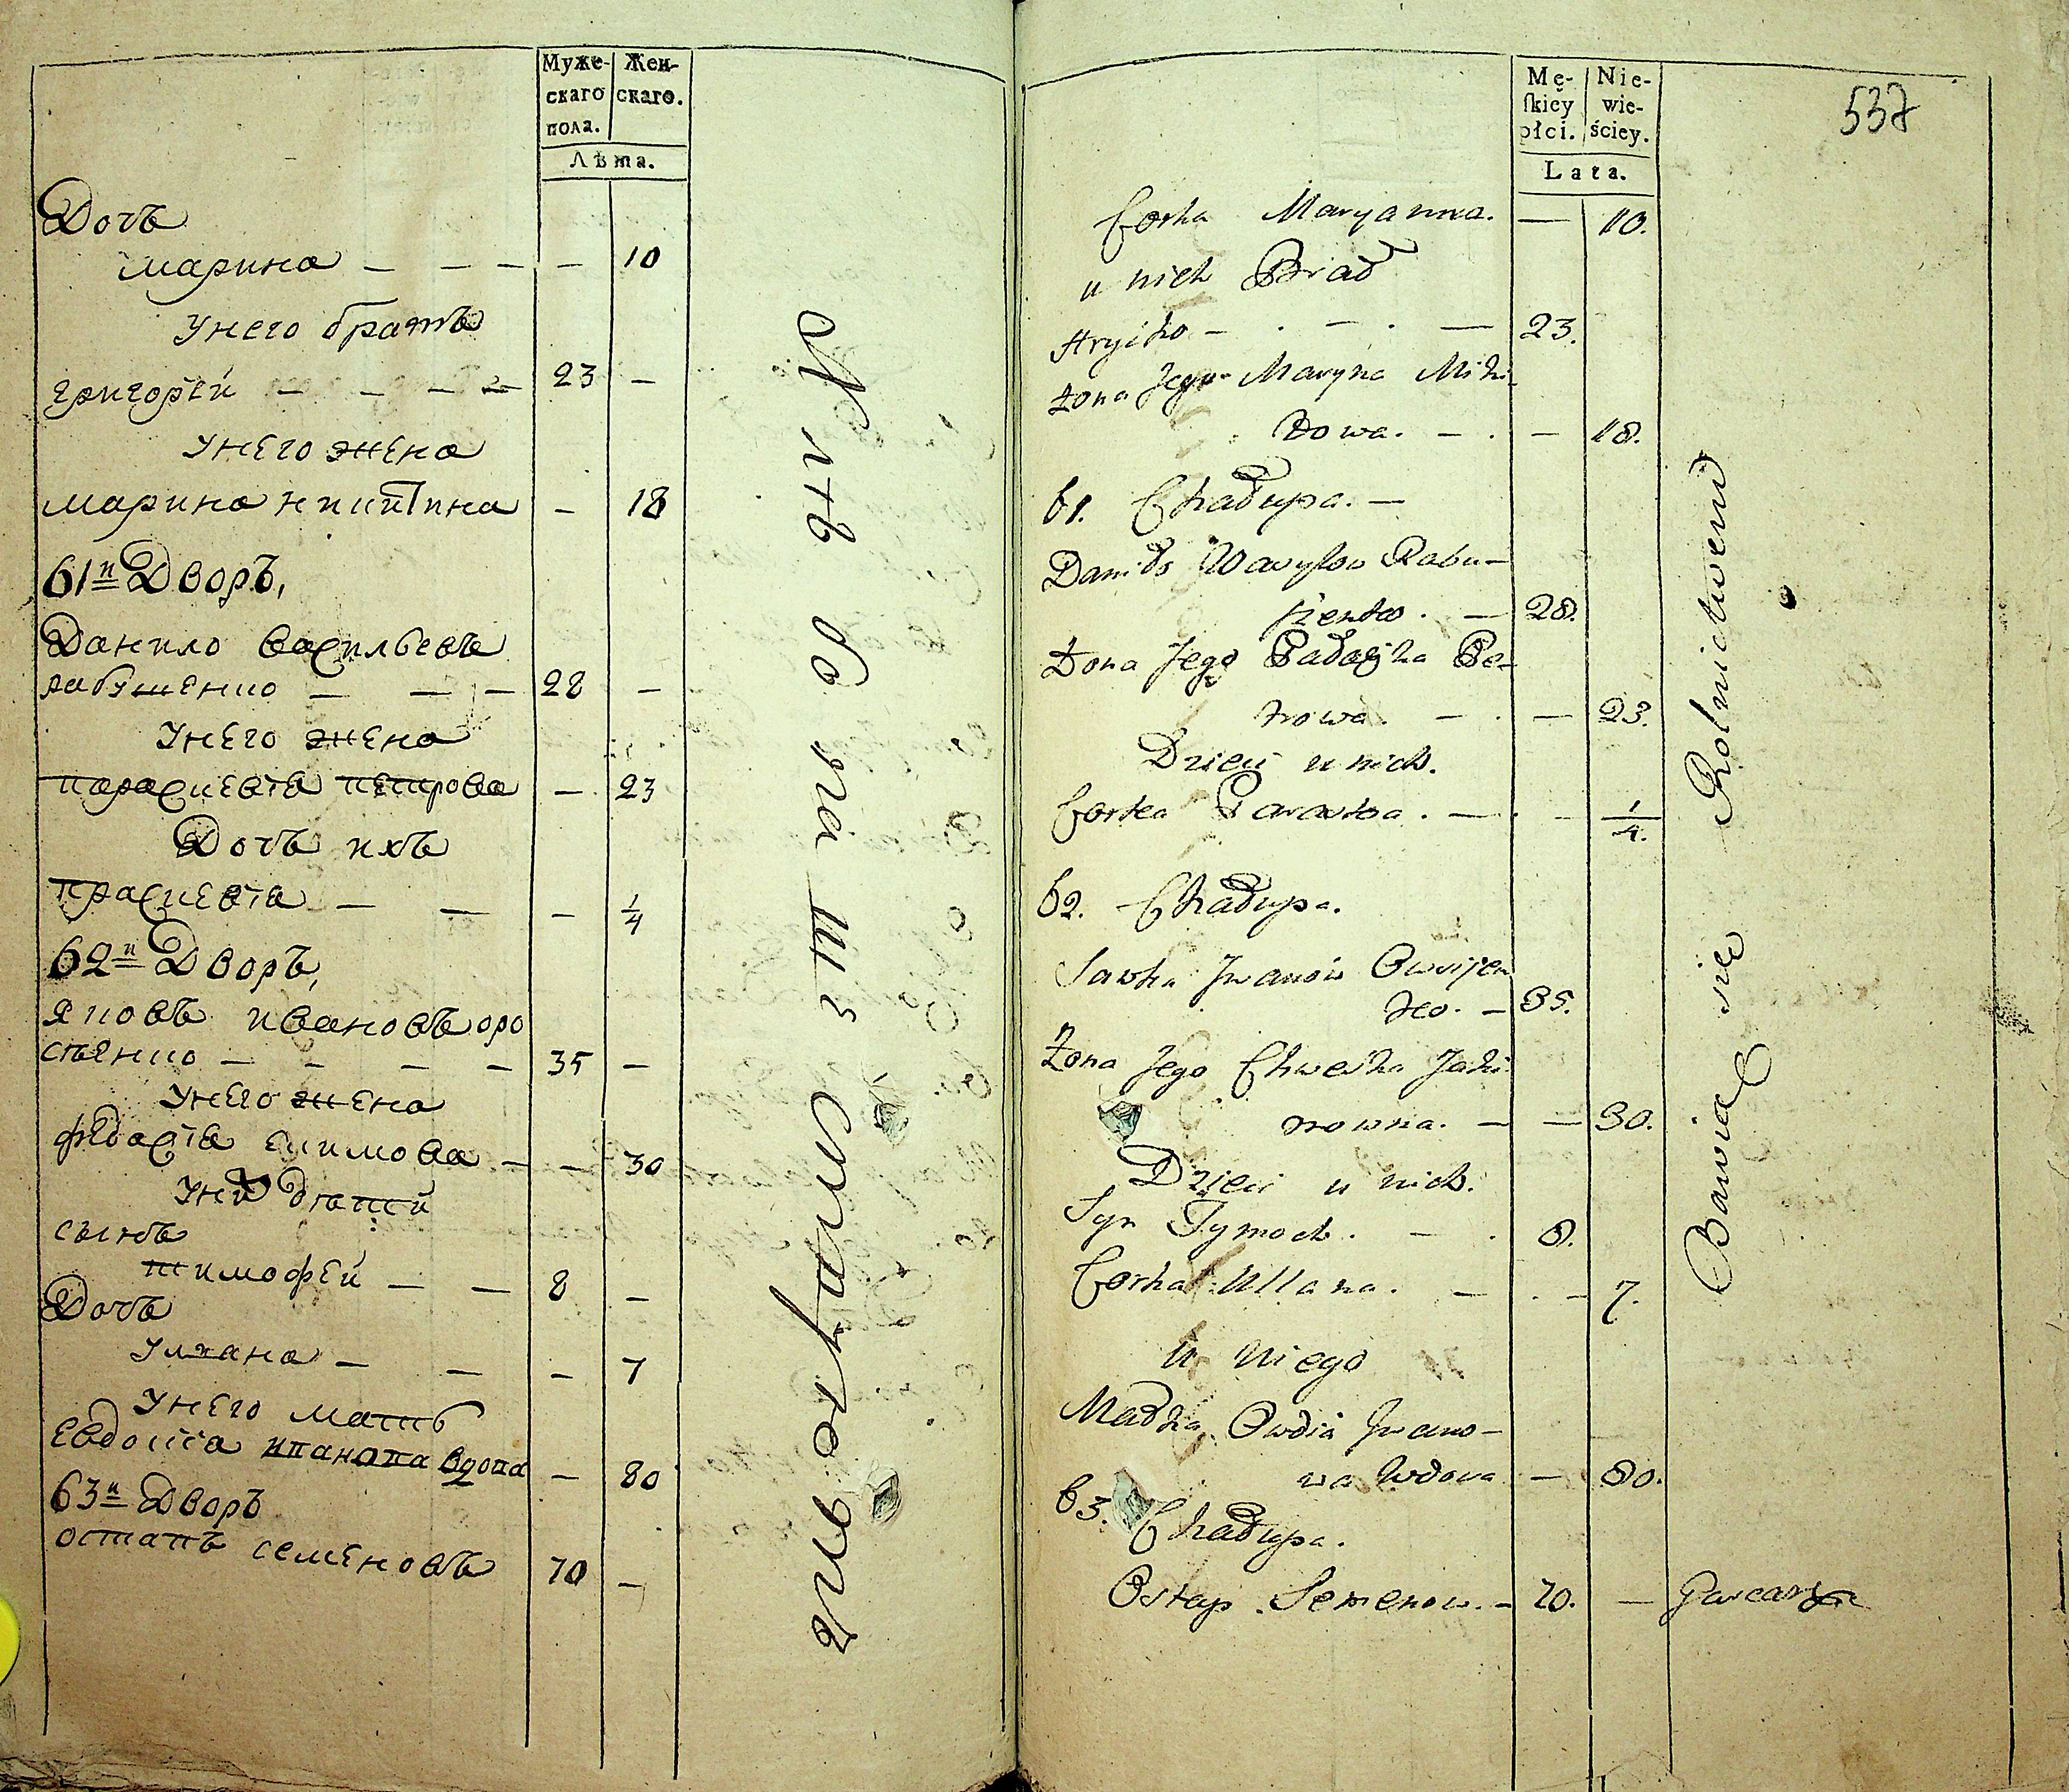 Муже-
скаго
пола.
Жен-
скаго.
Лѣта.
Дочь
марина — — — — 10
Унего братъ
григорей — — — — 23 —
Унего жена
марина никитина — 18
61й Дворъ,
Данило васильевъ
рабушенко — — — 28 —
Унего жена
парасковѣя петрова — 23
Дочь ихъ
прасковѣя — — — 1/4
62й Дворъ,
яковъ ивановъ
35 —
Унего жена
федосѣя екимова — — 30
дѣтей
сынъ
тимофей — — 8 —
Дочь
Улиана — — — 7
Унего мать
евдокѣя иванова вдова — 80
63й Дворъ
остапъ семеновъ 70 —
Mę-
skiey
płci.
Nie-
wie-
ściey.
Lata.
537
Corka Maryanna. — 10.
u nich Brat
Hryćko — . — . — 23.
Żona Jego Maryna Miki-
towa. — . — 18.
61. Chałupa. —
Daniło Wasylow Rabu-
szenko . — 28.
Żona Jego Paraska Pe-
trowa. — . — 23.
Dzieci u nich.
Corka Paraska . — . — 1/4.
62. Chałupa.
Sawka Iwanow
ko. — 35.
Żona Jego Chweśka Jaki-
mowna. — — 30.
Dzieci u nich.
Syn Tymoch. — . 8.
Corka Ullana. — . — 7.
u niego
Matka Owdia Iwano-
wa Wdowa — 80.
63. Chałupa.
Ostap Semenow. — 70. — Garcarz
Bawią się Rolnictwem